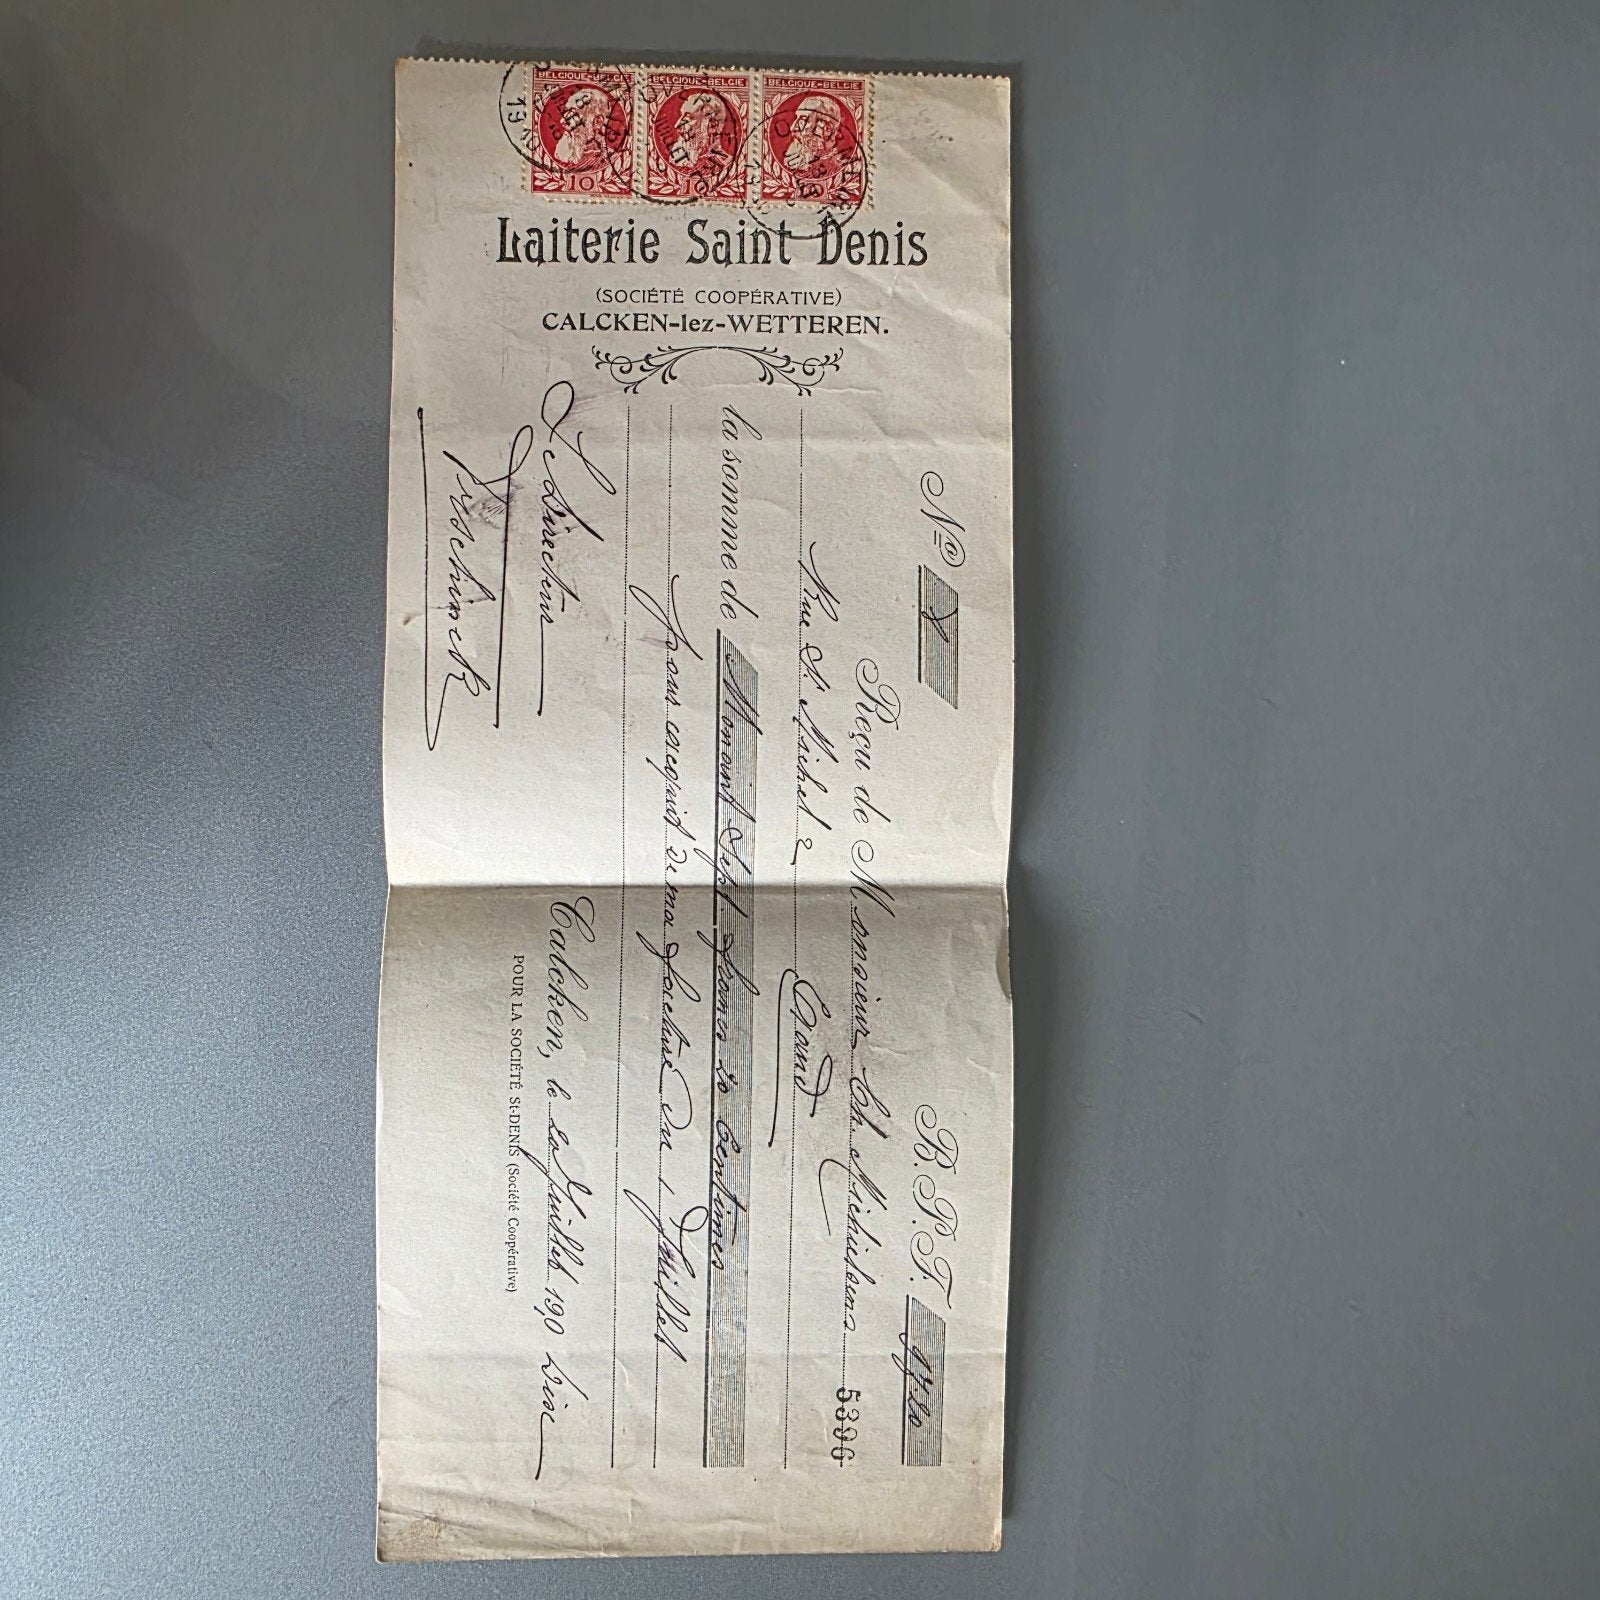 BELGIQUE-BELGIE BELGIQUE-BELGIE BELGIQUE-BELGIE
10
Laiterie Saint Denis
(SOCIÉTÉ COOPÉRATIVE)
CALCKEN-lez-WETTEREN.
No B.P.F. 97.20
Reçu de Monsieur Ch. Michielsens 5396
Rue St Michel 2 Gand
la somme de Nonante Sept francs 20 Centimes
pour acquit de ma facture du 1 Juillet
Calcken, le 20 Juillet 190 Dix
Le Directeur POUR LA SOCIÉTÉ St-DENIS (Société Coopérative)